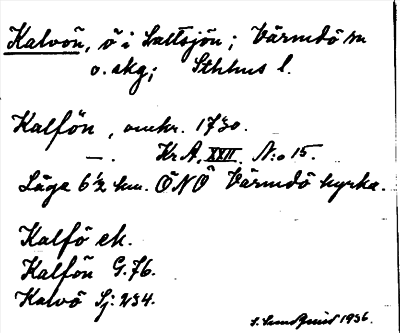 Kalvön, ö i Saltsjön; Värmdö sn
o. skg; Sthlms l.
Kalfön, omkr. 1730.
—. Kr A, XXII, N:o 15.
Läge 6½ km. ÖNÖ Värmdö kyrka.
Kalfö ek.
Kalfön G. 76.
Kalvö Sj: 234.
S. Lundquist 1936.